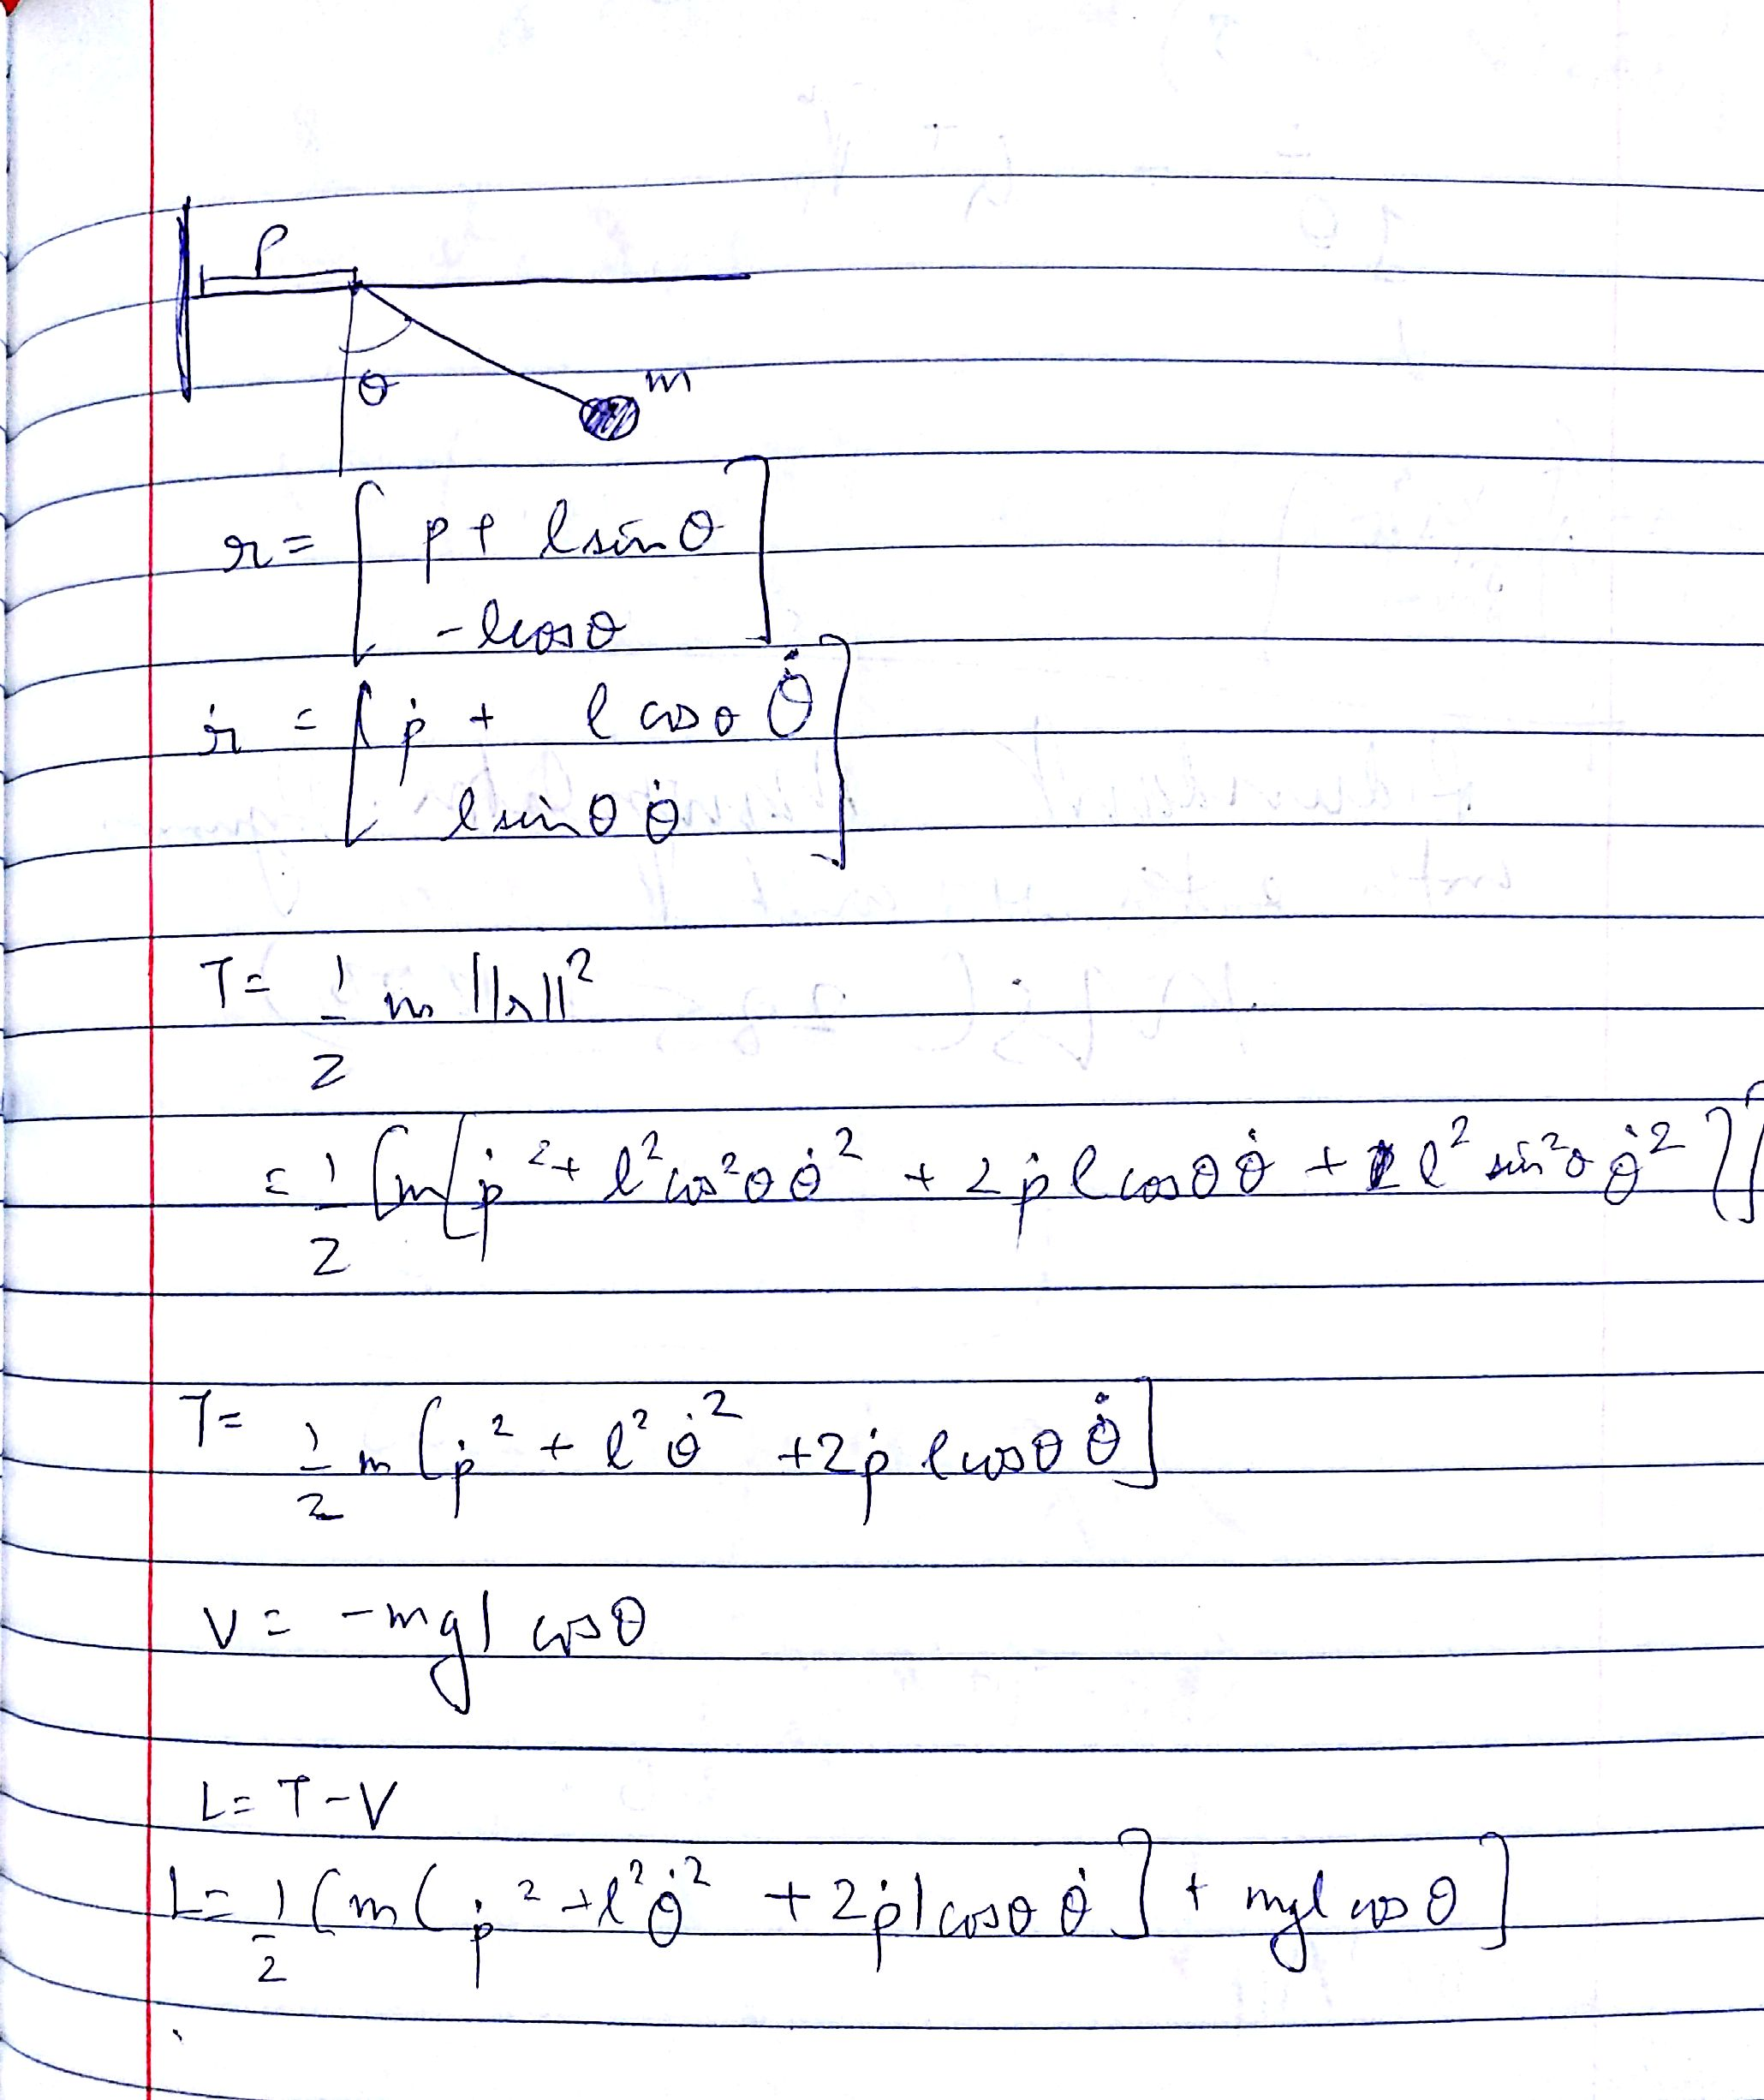 p
θ
m
r = [ p + l sin θ
- l cos θ ]
ṙ = [ ṗ + l cos θ θ̇
l sin θ θ̇ ]
T = 1/2 m ||ṙ||²
= 1/2 [m[ṗ² + l² cos² θ θ̇² + 2 ṗ l cos θ θ̇ + l² sin² θ θ̇²]]
T = 1/2 m [ṗ² + l² θ̇² + 2ṗ l cos θ θ̇]
V = -mgl cos θ
L = T - V
L = 1/2 [m(ṗ² + l² θ̇² + 2ṗ l cos θ θ̇] + mgl cos θ]